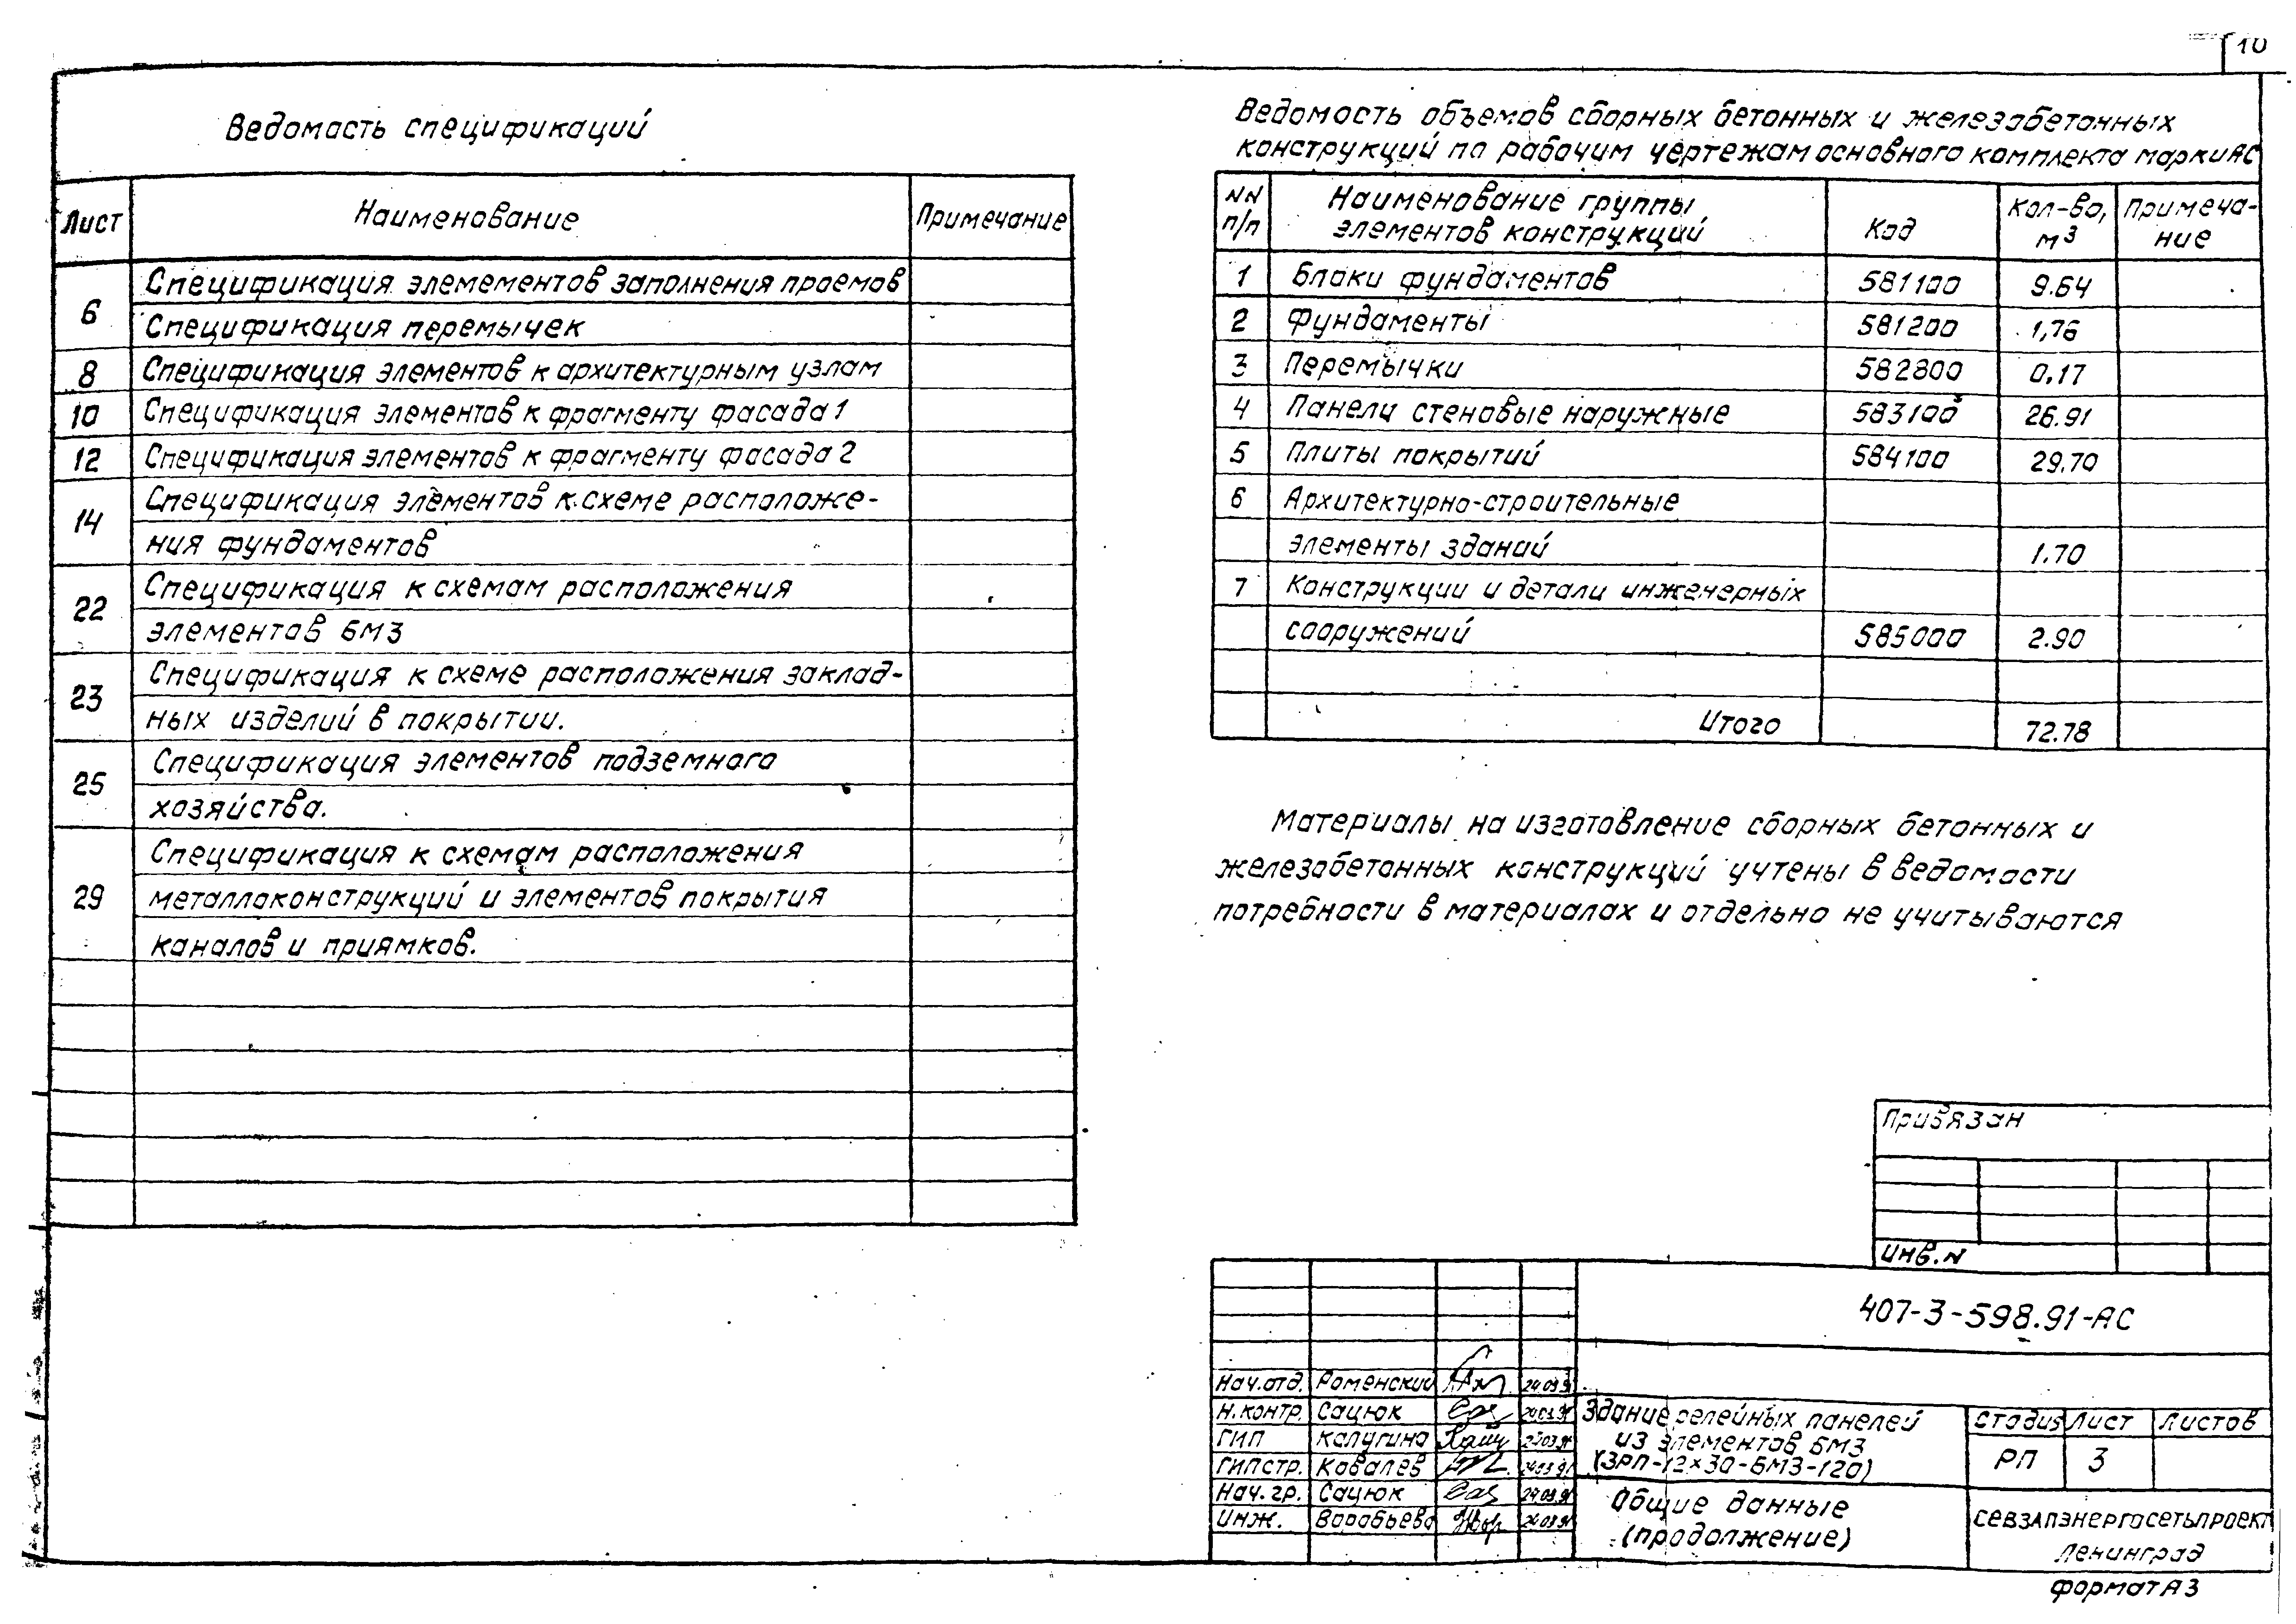 10
Ведомость спецификаций
Лист Наименование Примечание
6 Спецификация элемементов заполнения проемов
Спецификация перемычек
8 Спецификация элементов к архитектурным узлам
10 Спецификация элементов к фрагменту фасада 1
12 Спецификация элементов к фрагменту фасада 2
14 Спецификация элементов к схеме расположе-
ния фундаментов
22 Спецификация к схемам расположения
элементов БМЗ
23 Спецификация к схеме расположения заклад-
ных изделий в покрытии.
25 Спецификация элементов подземного
хозяйства.
29 Спецификация к схемам расположения
металлоконструкций и элементов покрытия
каналов и приямков.
Ведомость объемов сборных бетонных и железобетонных
конструкций по рабочим чертежам основного комплекта марки АС
NN п/п Наименование группы элементов конструкций Код Кол-во, м3 Примеча-ние
1 Блоки фундаментов 581100 9.64
2 Фундаменты 581200 1,76
3 Перемычки 582800 0,17
4 Панели стеновые наружные 583100 26.91
5 Плиты покрытий 584100 29.70
6 Архитектурно-строительные
элементы зданий 1.70
7 Конструкции и детали инженерных
сооружений 585000 2.90
Итого 72.78
Материалы на изготовление сборных бетонных и
железобетонных конструкций учтены в ведомости
потребности в материалах и отдельно не учитываются
Привязан
Инв. N
407-3-598.91-АС
Нач.отд. Роменский 24.09.91
Н.контр. Сацюк
ГИП Калугина
ГИПстр. Ковалев
Нач. гр. Сацюк 24.09.91
Инж. Воробьева 24.09.91
Здание релейных панелей
из элементов БМЗ
(ЗРП-12×30-БМЗ-120)
Стадия Лист Листов
РП 3
Общие данные
(продолжение)
Севзапэнергосетьпроект
Ленинград
формат А3